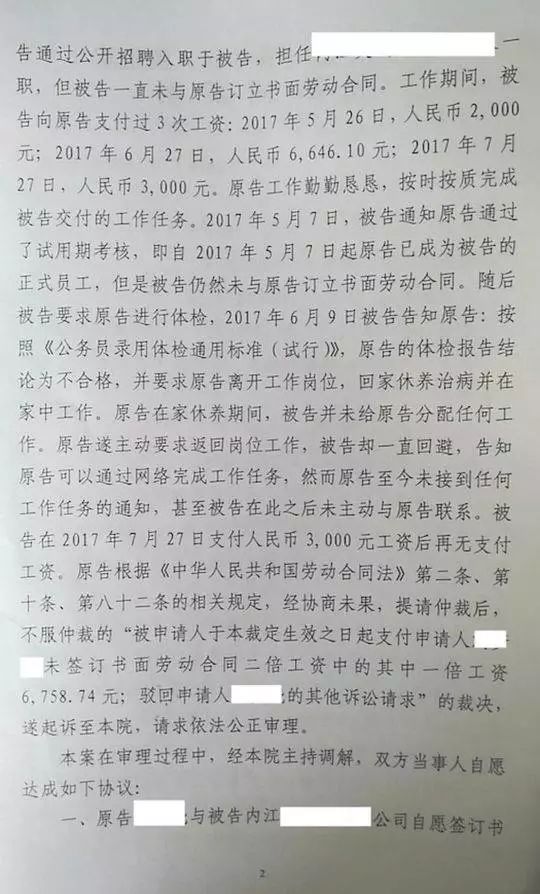 告通过公开招聘入职于被告，担任
一
职，但被告一直未与原告订立书面劳动合同。工作期间，被
告向原告支付过3次工资：2017年5月26日，人民币2,000
元；2017年6月27日，人民币6,646.10元；2017年7月
27日，人民币3,000元。原告工作勤勤恳恳，按时按质完成
被告交付的工作任务。2017年5月7日，被告通知原告通过
了试用期考核，即自2017年5月7日起原告已成为被告的
正式员工，但是被告仍然未与原告订立书面劳动合同。随后
被告要求原告进行体检，2017年6月9日被告告知原告：按
照《公务员录用体检通用标准（试行）》，原告的体检报告结
论为不合格，并要求原告离开工作岗位，回家休养治病并在
家中工作。原告在家休养期间，被告并未给原告分配任何工
作。原告遂主动要求返回岗位工作，被告却一直回避，告知
原告可以通过网络完成工作任务，然而原告至今未接到任何
工作任务的通知，甚至被告在此之后未主动与原告联系。被
告在2017年7月27日支付人民币3,000元工资后再无支付
工资。原告根据《中华人民共和国劳动合同法》第二条、第
十条、第八十二条的相关规定，经协商未果，提请仲裁后，
不服仲裁的“被申请人于本裁定生效之日起支付申请人
未签订书面劳动合同二倍工资中的其中一倍工资
6,758.74元；驳回申请人 的其他诉讼请求”的裁决，
遂起诉至本院，请求依法公正审理。
本案在审理过程中，经本院主持调解，双方当事人自愿
达成如下协议：
一、原告 与被告内江 公司自愿签订书
2